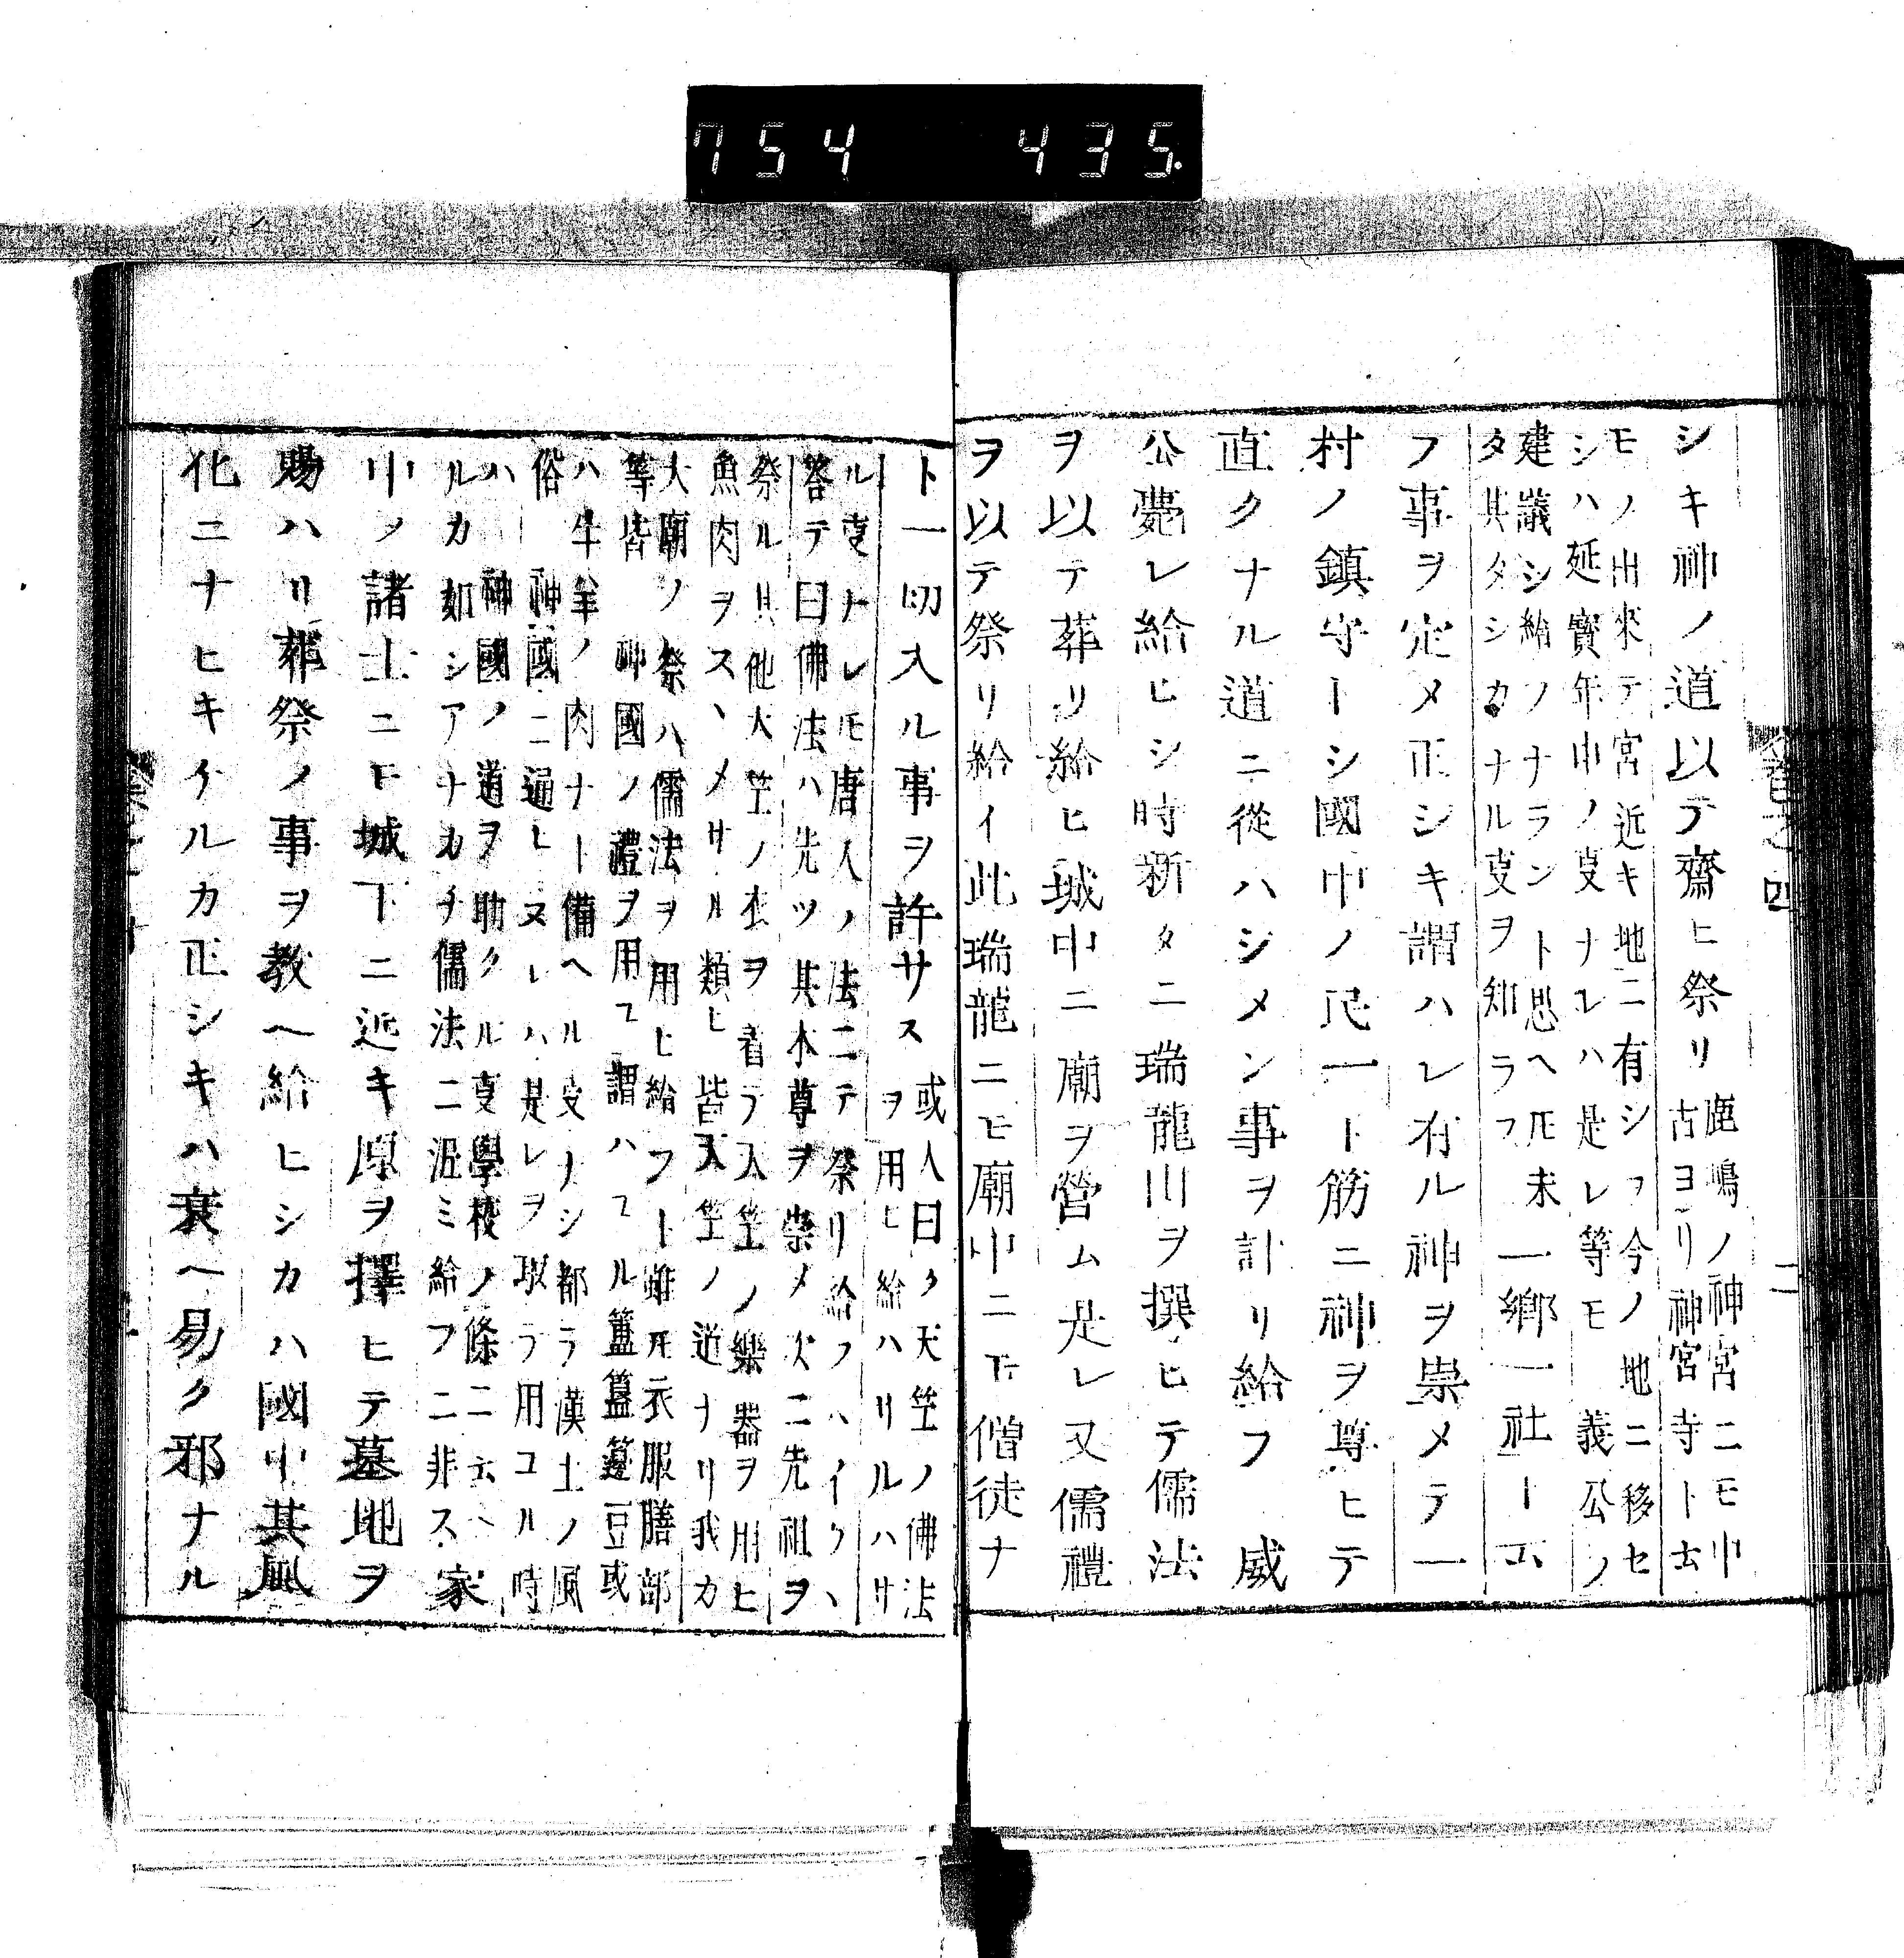 754 435.
シキ神ノ道以テ齋ヒ祭リ
鹿嶋ノ神宮ニモ中
古ヨリ神宮寺ト云
モノ出來テ宮近キ地ニ有シヲ今ノ地ニ移セ
シハ延寶年中ノ叓ナレハ是レ等モ義公ノ
建議シ給ノナラント思ヘ𪜈未
タ其タシカナル叓ヲ知ラス
一鄉一社ト云
フ事ヲ定メ正シキ謂ハレ有ル神ヲ崇メテ一
村ノ鎮守トシ國中ノ民一ト筋ニ神ヲ尊ヒテ
直クナル道ニ從ハシメン事ヲ計リ給フ 威
公薨レ給ヒシ時新タニ瑞龍山ヲ撰ヒテ儒法
ヲ以テ葬リ給ヒ城中ニ廟ヲ營ム是レ又儒禮
ヲ以テ祭リ給イ此瑞龍ニモ廟中ニモ僧徒ナ
卷之四
二
ト一切入ル事ヲ許サス
或人曰ク天竺ノ佛法
ヲ用ヒ給ハリルハサ
ル叓ナレモ唐人ノ法ニテ祭リ給フハイクヽ
答テ曰佛法ハ先ツ其本尊ヲ崇メ次ニ先祖ヲ
祭ル其他大竺ノ衣ヲ着テ天竺ノ樂器ヲ用ヒ
魚肉ヲスヽメサル類ヒ皆天竺ノ道ナリ我カ
大廟ノ祭ハ儒法ヲ用ヒ給フト雖𪜈衣服膳部
等皆 神國ノ禮ヲ用ユ謂ハユル簠簋籩豆或
ハ牛羊ノ肉ナト備ヘル叓ナシ都テ漢土ノ風
俗 神國ニ通ヒヌレハ是レヲ取テ用ユル時
ハ 神國ノ道ヲ助クル叓學校ノ條ニ云ヘ
ルカ如シアナカチ儒法ニ泥ミ給フニ非ス
家
中ノ諸士ニモ城下ニ近キ原ヲ擇ヒテ墓地ヲ
賜ハリ葬祭ノ事ヲ教ヘ給ヒシカハ國中其風
化ニナヒキケルカ正シキハ衰ヘ易ク邪ナル